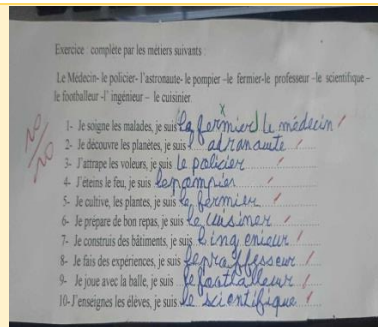 Exercice : complète par les métiers suivants :
Le Médecin- le policier- l'astronaute- le pompier –le fermier-le professeur –le scientifique –
le footballeur -l' ingénieur – le cuisinier.
20/20
1- Je soigne les malades, je suis le fermier le médecin
2- Je découvre les planètes, je suis l'adronaute
3- J'attrape les voleurs, je suis le policier
4- J'éteins le feu, je suis le pompier
5- Je cultive, les plantes, je suis le fermier
6- Je prépare de bon repas, je suis le cuisiner
7- Je construis des bâtiments, je suis l ing enieur
8- Je fais des expériences, je suis le proffesseur
9- Je joue avec la balle, je suis le footballeur
10-J'enseignes les élèves, je suis le scientifique